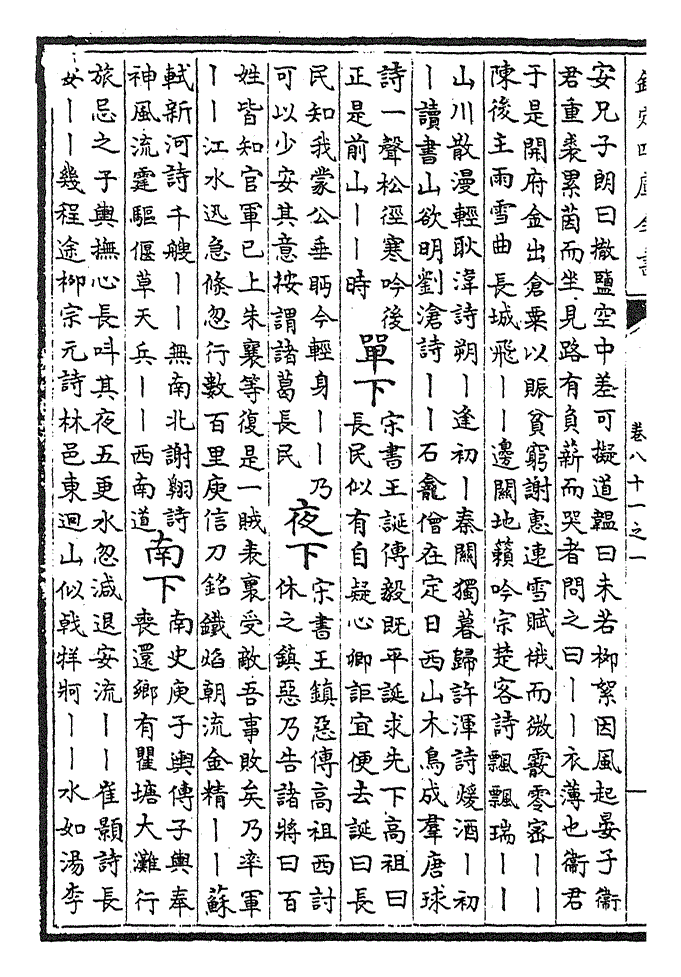 欽定四庫全書
卷八十一之一
安兄子朗曰撒鹽空中差可擬道韞曰未若柳絮因風起晏子衛
君重裘累茵而坐見路有負薪而哭者問之曰丨丨衣薄也衛君
于是開府金出倉粟以賑貧窮謝惠連雪賦俄而微霰零密丨丨
陳後主雨雪曲長城飛丨丨邊關地籟吟宗楚客詩飄飄瑞丨丨
山川散漫輕耿湋詩朔丨逢初丨秦關獨暮歸許渾詩煖酒丨初
丨讀書山欲明劉滄詩丨丨石龕僧在定日西山木鳥成羣唐球
詩一聲松徑寒吟後
正是前山丨丨時
單下
宋書王誕傳毅既平誕求先下高祖曰
長民似有自疑心卿詎宜便去誕曰長
民知我蒙公垂眄今輕身丨丨乃
可以少安其意按謂諸葛長民
夜下
宋書王鎮惡傳高祖西討
休之鎮惡乃告諸將曰百
姓皆知官軍已上朱襄等復是一賊表裏受敵吾事敗矣乃率軍
丨丨江水迅急倏忽行數百里庾信刀銘鐵焰朝流金精丨丨蘇
軾新河詩千艘丨丨無南北謝翱詩
神風流霆驅偃草天兵丨丨西南道
南下
南史庾子輿傳子輿奉
喪還鄉有瞿塘大灘行
旅忌之子輿撫心長叫其夜五更水忽減退安流丨丨崔顥詩長
女丨丨幾程途柳宗元詩林邑東迴山似戟牂牁丨丨水如湯李